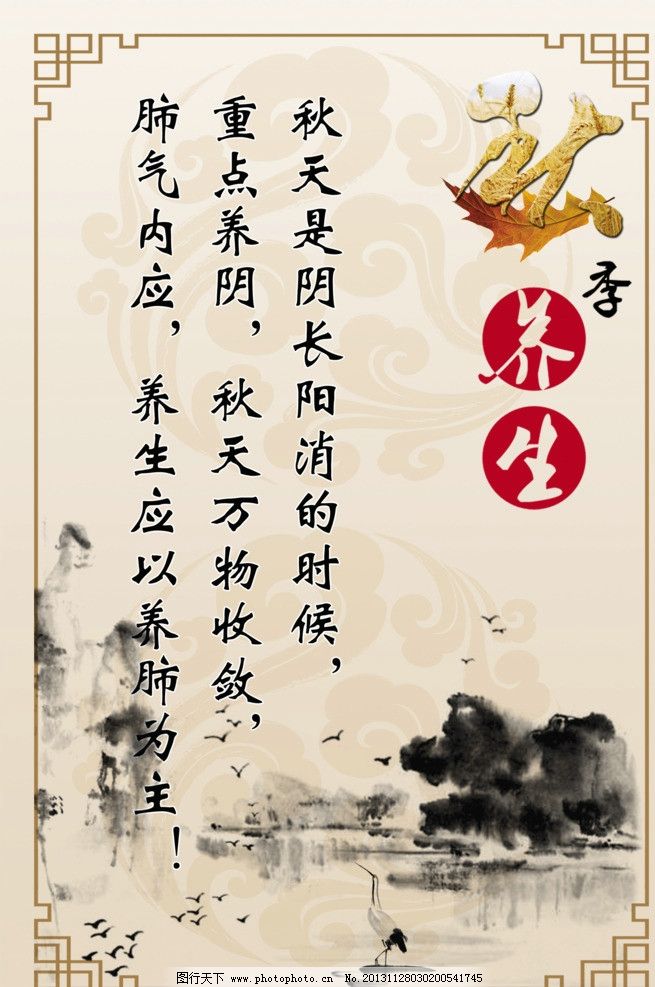 秋季养生
秋天是阴长阳消的时候，
重点养阴，秋天万物收敛，
肺气内应，养生应以养肺为主！
图行天下 www.photophoto.cn No.20131128030200541745